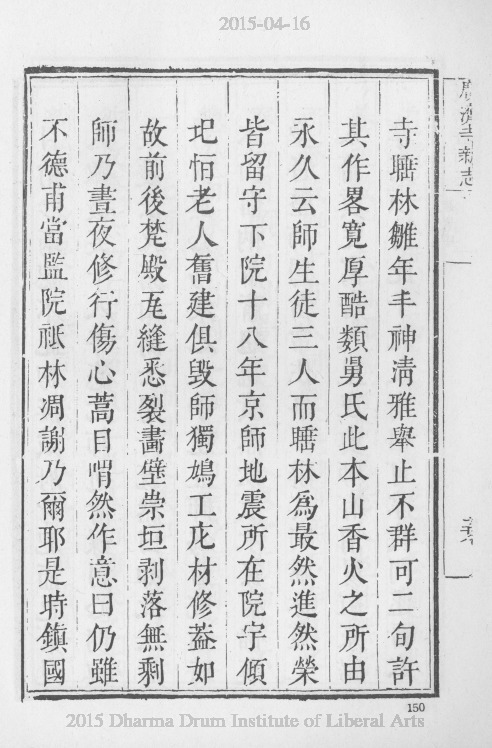 2015-04-16
廣濟寺新志
寺曕林雛年丰神清雅舉止不群可二旬許
其作畧寬厚酷類舅氏此本山香火之所由
永久云師生徒三人而曕林為最然進然榮
皆留守下院十八年京師地震所在院宇傾
圯恒老人舊建俱毀師獨鳩工庀材修葢如
故前後梵殿瓦縫悉裂畵壁崇垣剥落無剩
師乃晝夜修行傷心蒿目喟然作意曰仍雖
不德甫當監院祗林凋謝乃爾耶是時鎮國
150
2015 Dharma Drum Institute of Liberal Arts